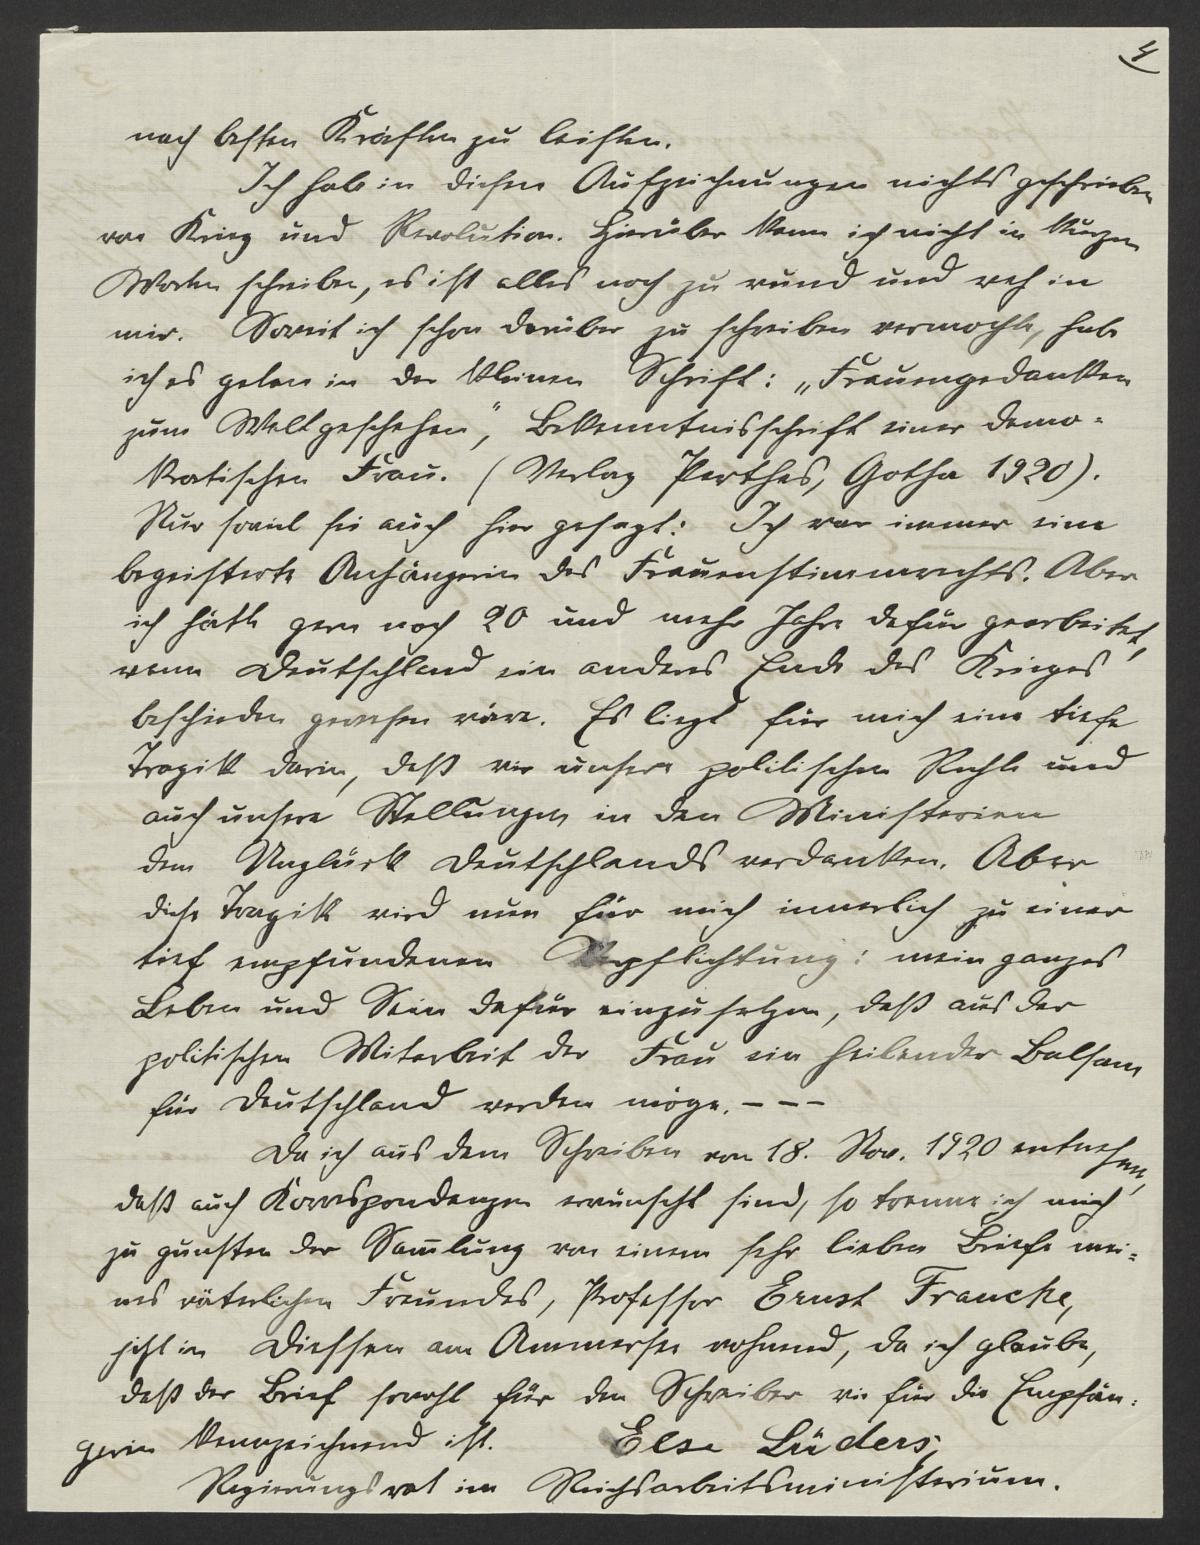 4
nach besten Kräften zu leisten.
Ich habe in diesen Aufzeichnungen nichts geschrieben
von Krieg und Revolution. Hierüber kann ich nicht in kurzen
Worten schreiben, es ist alles noch zu wund und weh in
mir. Soweit ich schon darüber zu schreiben vermochte, habe
ich es getan in der kleinen Schrift: „Frauengedanken
zum Weltgeschehen", Bekenntnisschrift einer demo-
kratischen Frau. (Verlag Perthes, Gotha 1920).
Nur soviel sei auch hier gesagt: Ich war immer eine
begeisterte Anhängerin des Frauenstimmrechts. Aber
ich hätte gern noch 20 und mehr Jahre dafür gearbeitet,
wenn Deutschland ein anderes Ende des Krieges
beschieden gewesen wäre. Es liegt für mich eine tiefe
Tragik darin, daß wir unsere politischen Rechte und
auch unsere Stellungen in den Ministerien
dem Unglück Deutschlands verdanken. Aber
diese Tragik wird nun für mich innerlich zu einer
tief empfundenen Verpflichtung: mein ganzes
Leben und Sein dafür einzusetzen, daß aus der
politischen Mitarbeit der Frau ein heilender Balsam
für Deutschland werden möge. – – –
Da ich aus dem Schreiben vom 18. Nov. 1920 entnehme,
daß auch Korrespondenzen erwünscht sind, so trenne ich mich
zu gunsten der Sam̄lung von einem sehr lieben Briefe mei-
nes väterlichen Freundes, Professor Ernst Francke,
jetzt in Diessen am Ammersee wohnend, da ich glaube,
daß der Brief sowohl für den Schreiber wie für die Empfän-
gerin kennzeichnend ist. Else Lüders,
Regierungsrat im Reichsarbeitsministerium.